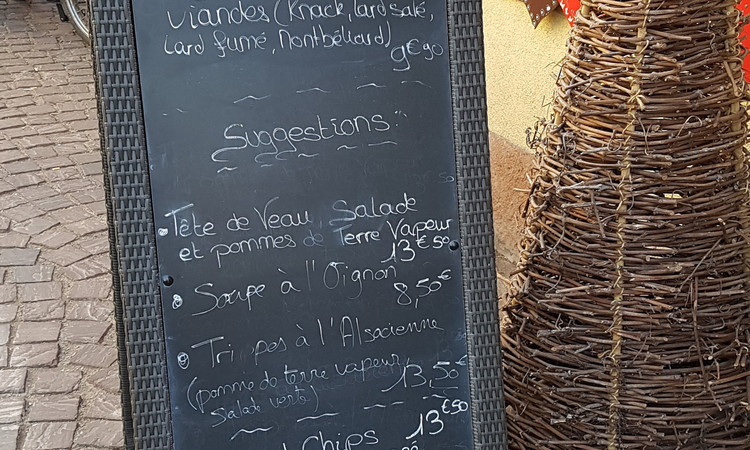 Viandes (Knack, lard salé,
Lard fumé, Montbéliard)
9€90
Suggestions:
Tête de Veau, Salade
et pommes de Terre Vapeur
13€50
Soupe à l'Oignon
8,50€
Tripes à l'Alsacienne
(pomme de terre vapeur,
Salade verte)
13,50€
13€50
Chips